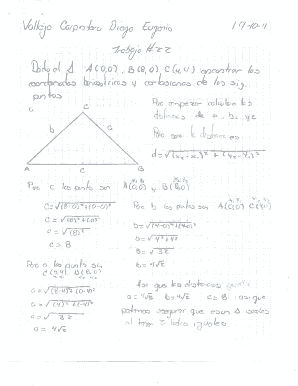 Vallejo Carpintero Diego Eugenio 17-10-11
Trabajo #22
Dado el Δ A(0,0), B(8,0) C(4,4) encontrar las
coordenadas baricentricas y cartesianas de los sig.
puntos
Por empezar calculamos las
distancias de a, b, y c
Por la distancia
d=√(x₂-x₁)²+(y₂-y₁)²
C
b
a
A
c
B
Por c los puntos son A(0,0) y B(8,0)
c=√(8-0)²+(0-0)²
c=√(8)²+(0)²
c=√(8)²
c= 8
Por b los puntos son A(0,0) C(4,4)
b=√(4-0)²+(4-0)²
b=√4²+4²
b=√32
b=4√2
Por a los puntos son
C(4,4) B(8,0)
a=√(8-4)²+(0-4)²
a=√(4)²+(-4)²
a=√32
a=4√2
las distancias
a=4√2 b=4√2 c=8 así que
podemos asegurar que es un Δ
al tener 2 lados iguales